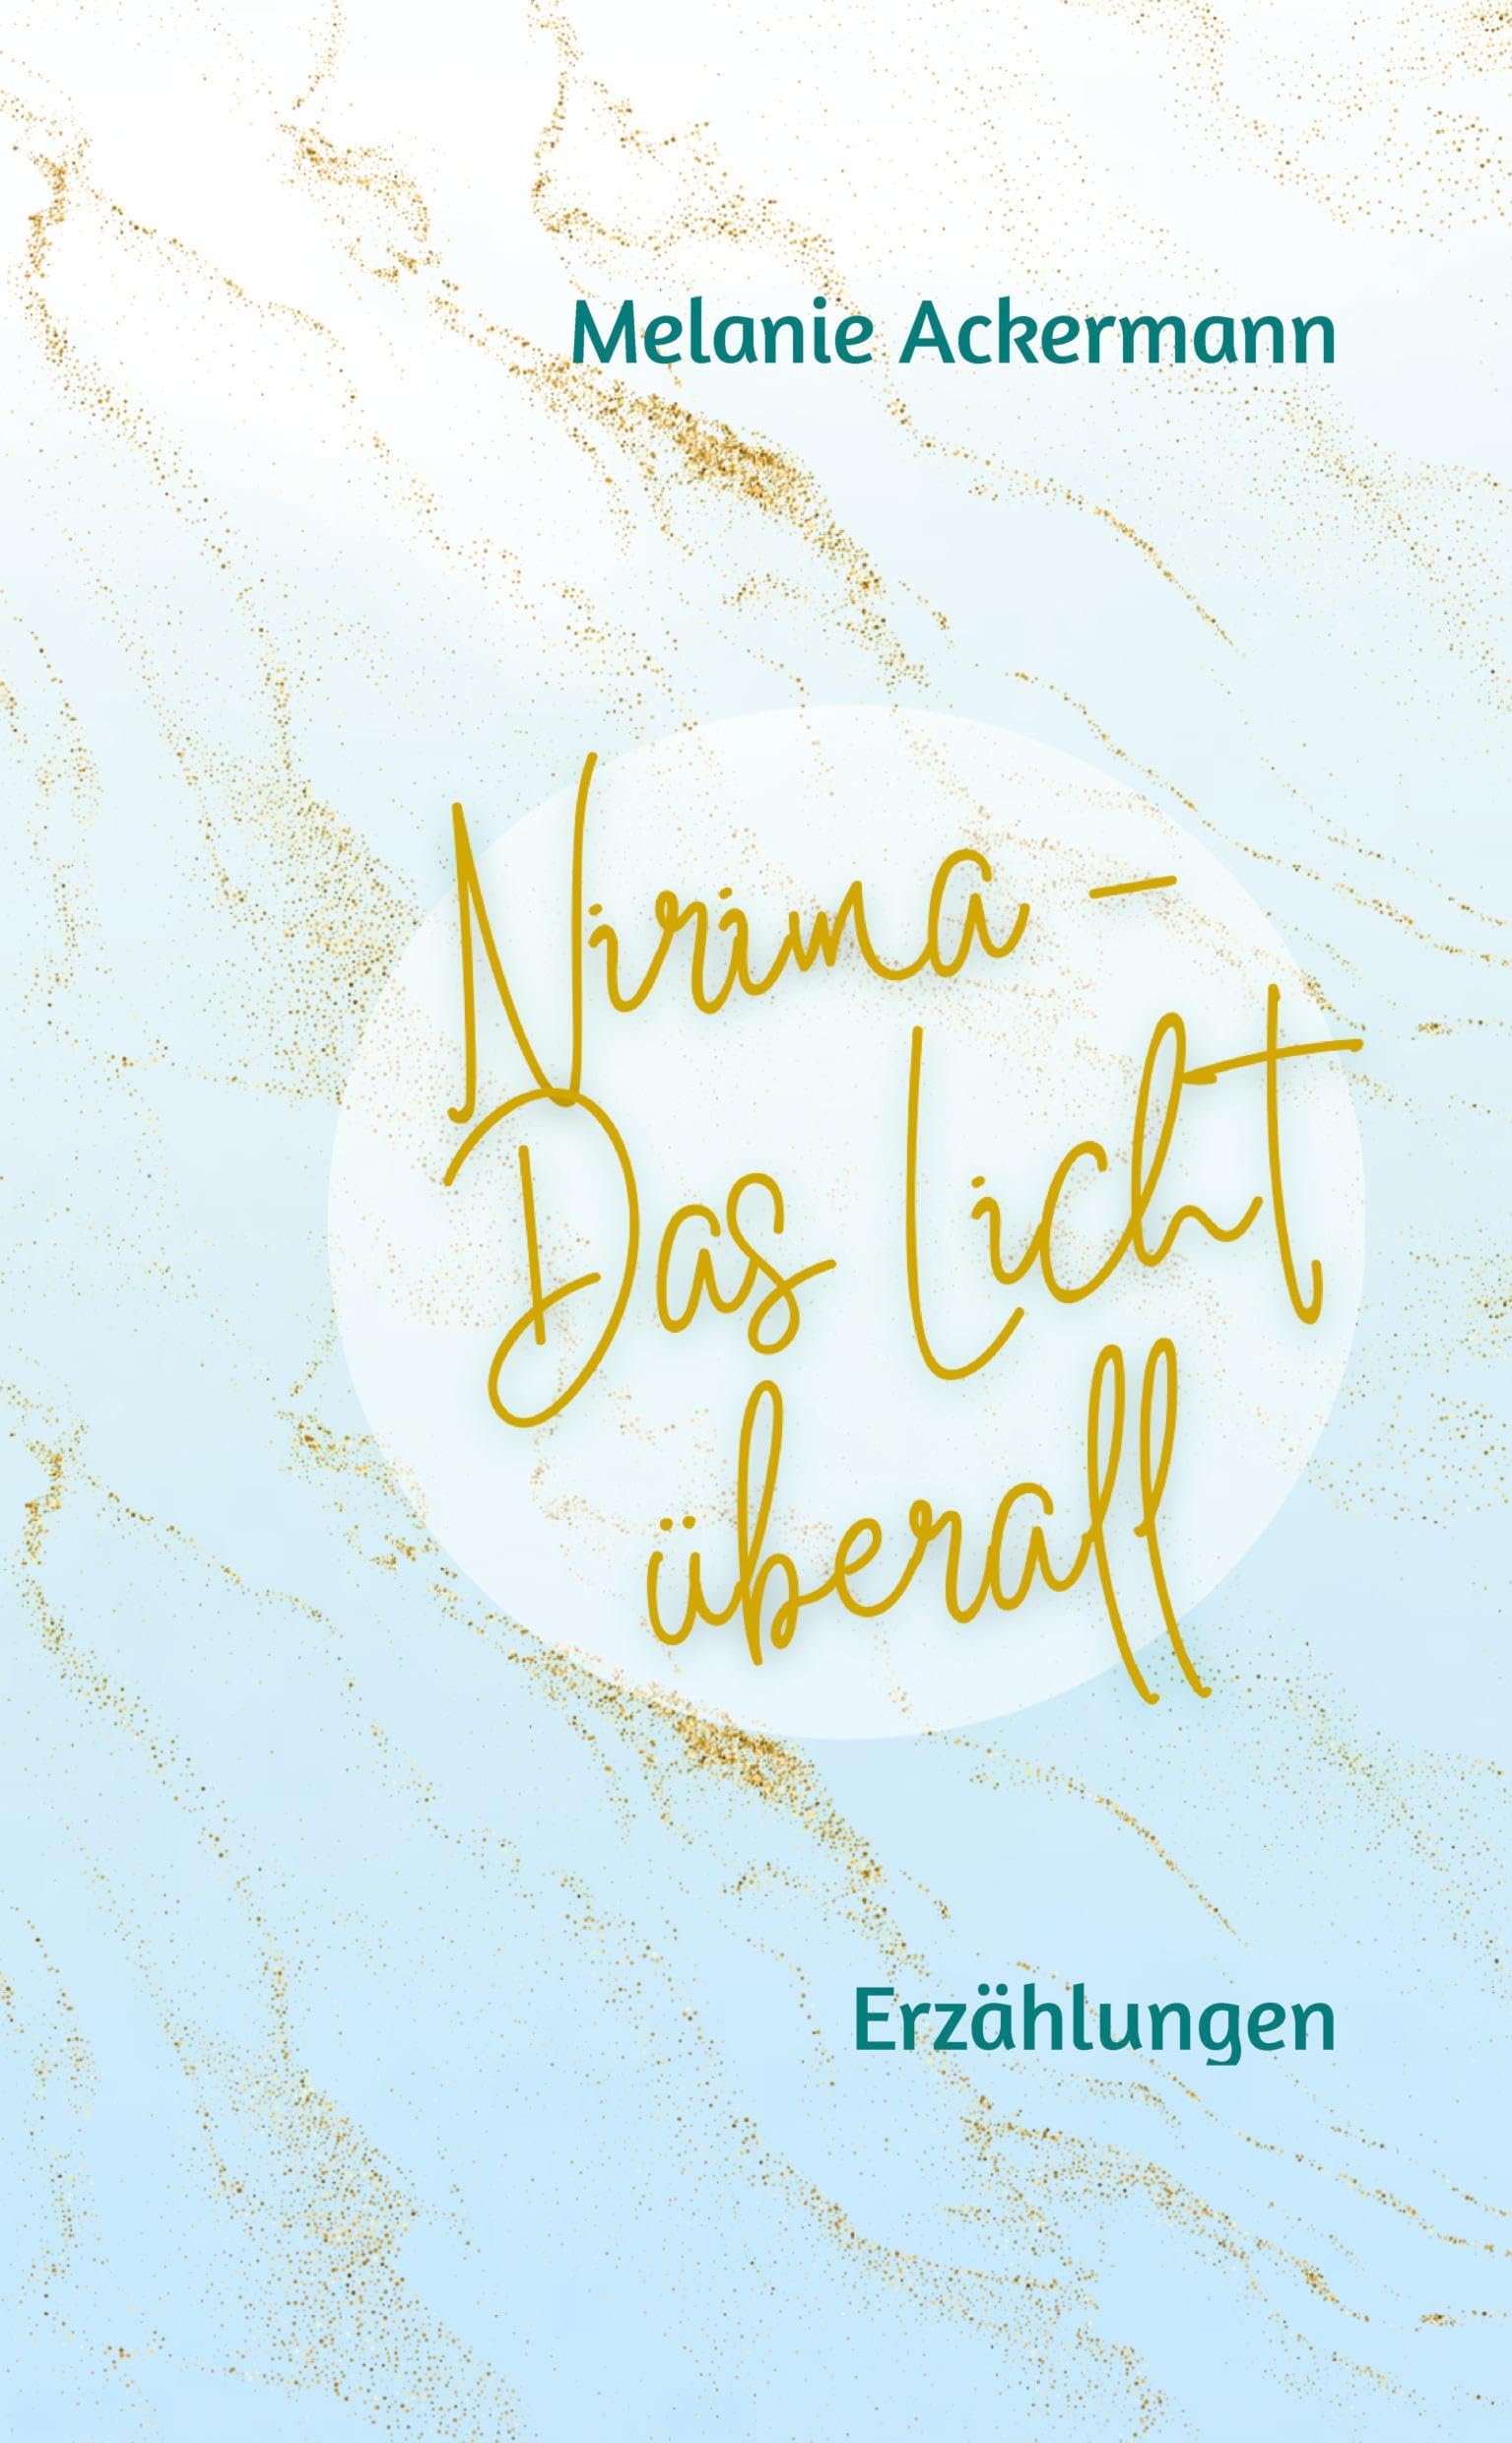 Melanie Ackermann
Nirima -
Das Licht
überall
Erzählungen